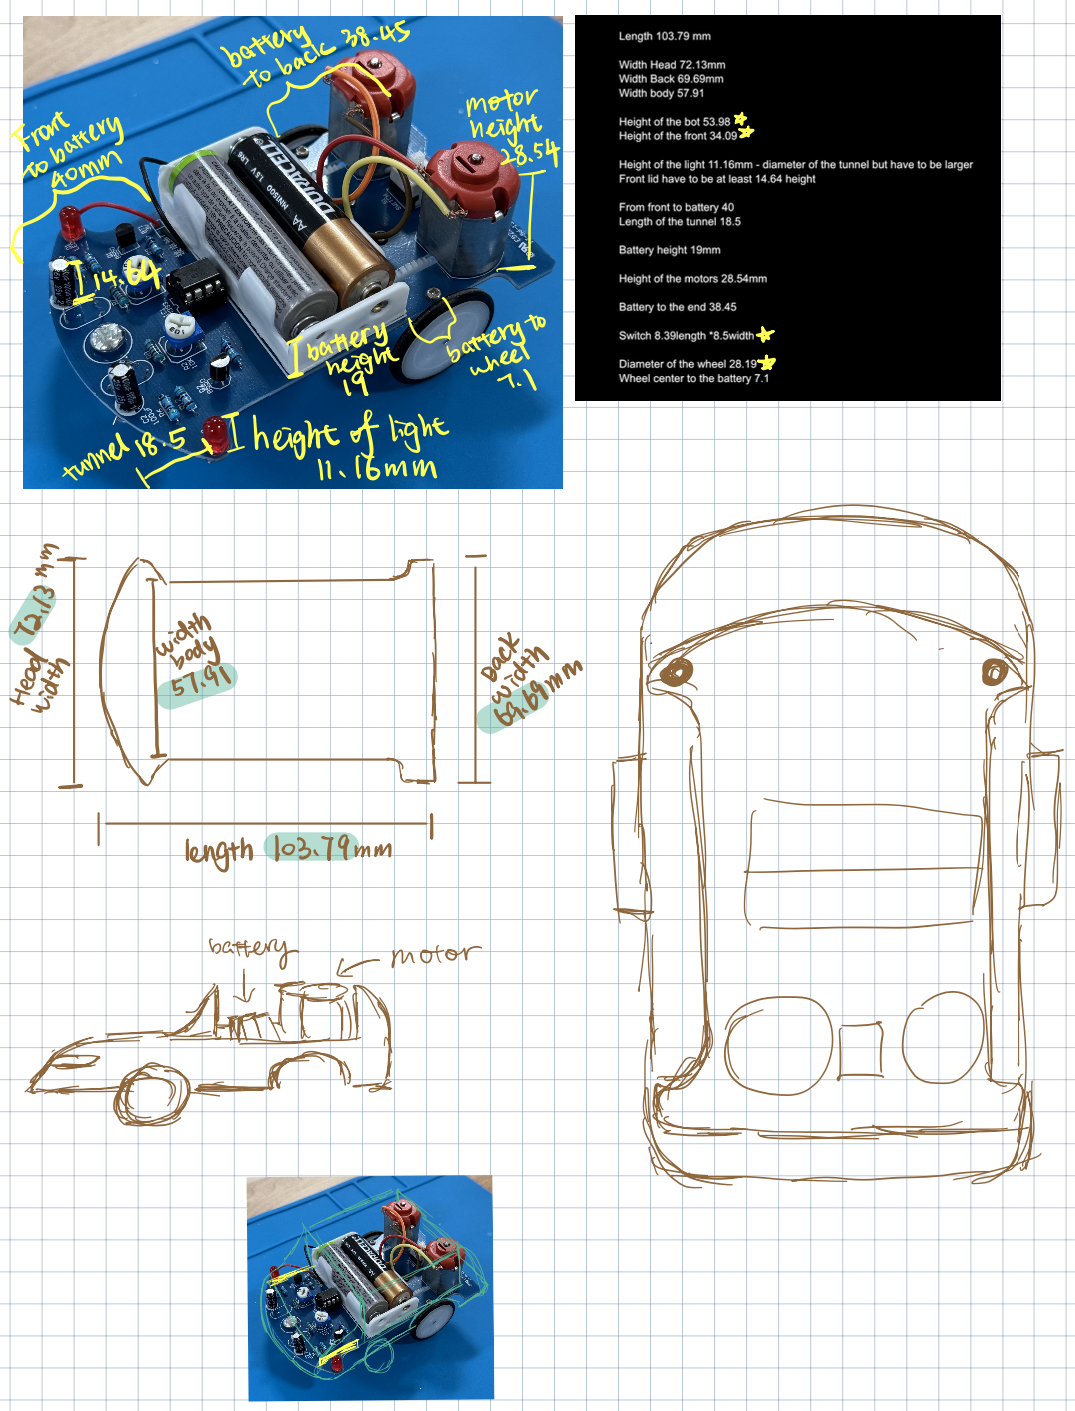 battery
to back 38.45
motor
height
28.54
Front
to battery
40mm
14.64
DURACELL
AA
MN1500 1.5V LR6
battery
height
19
battery to
wheel
7.1
tunnel 18.5
height of light
11.16mm
Length 103.79 mm
Width Head 72.13mm
Width Back 69.69mm
Width body 57.91
Height of the bot 53.98
Height of the front 34.09
Height of the light 11.16mm - diameter of the tunnel but have to be larger
Front lid have to be at least 14.64 height
From front to battery 40
Length of the tunnel 18.5
Battery height 19mm
Height of the motors 28.54mm
Battery to the end 38.45
Switch 8.39length *8.5width
Diameter of the wheel 28.19
Wheel center to the battery 7.1
Head
width
72.13 mm
width
body
57.91
back
width
69.69mm
length 103.79mm
battery
motor